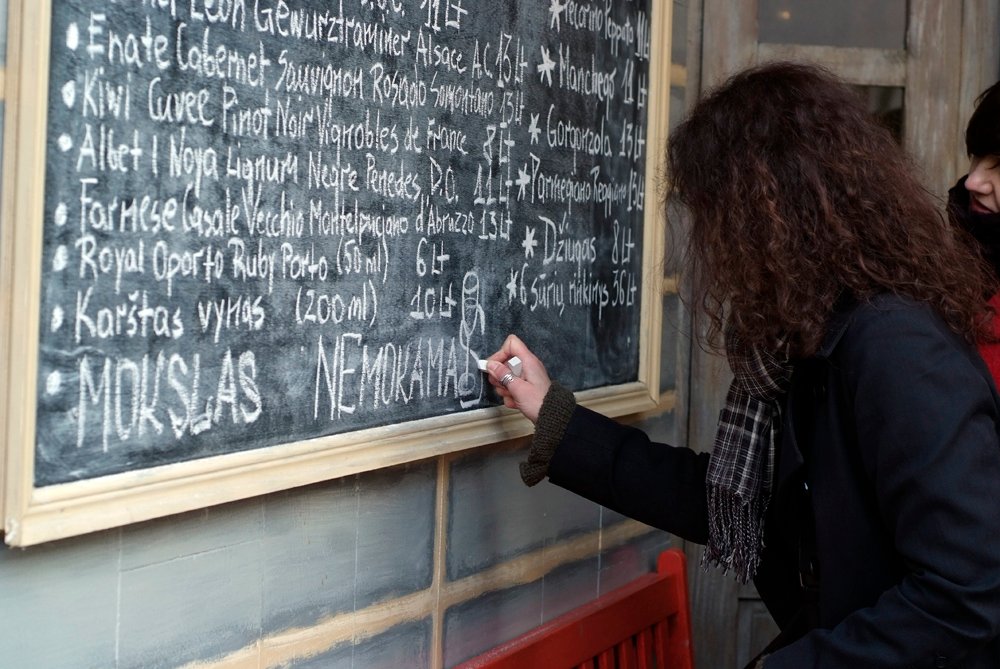 Leon Gewurztraminer Alsace AC 13Lt
Enate Cabernet Sauvignon Rosado Somontano 13Lt
Kiwi Cuvee Pinot Noir Vignobles de France 8Lt
Albet I Noya Lignum Negre Penedes D.O. 11Lt
Farnese Casale Vecchio Montelpulciano d'Abruzzo 13Lt
Royal Oporto Ruby Porto (50ml) 6Lt
Karštas vynas (200ml) 10Lt
MOKSLAS NEMOKAMAS
11Lt
Pecorino Peppato 11Lt
Manchego 11Lt
Gorgonzola 13Lt
Parmegiano Reggiano 13Lt
Džiugas 8Lt
6 sūrių rinkinys 36Lt